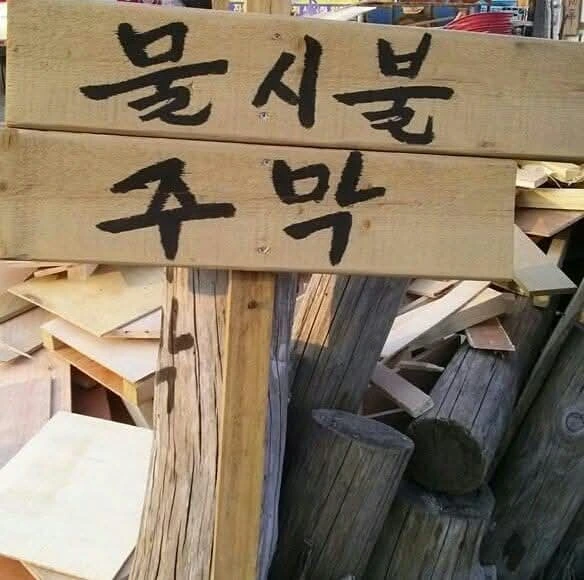 물시불
주막